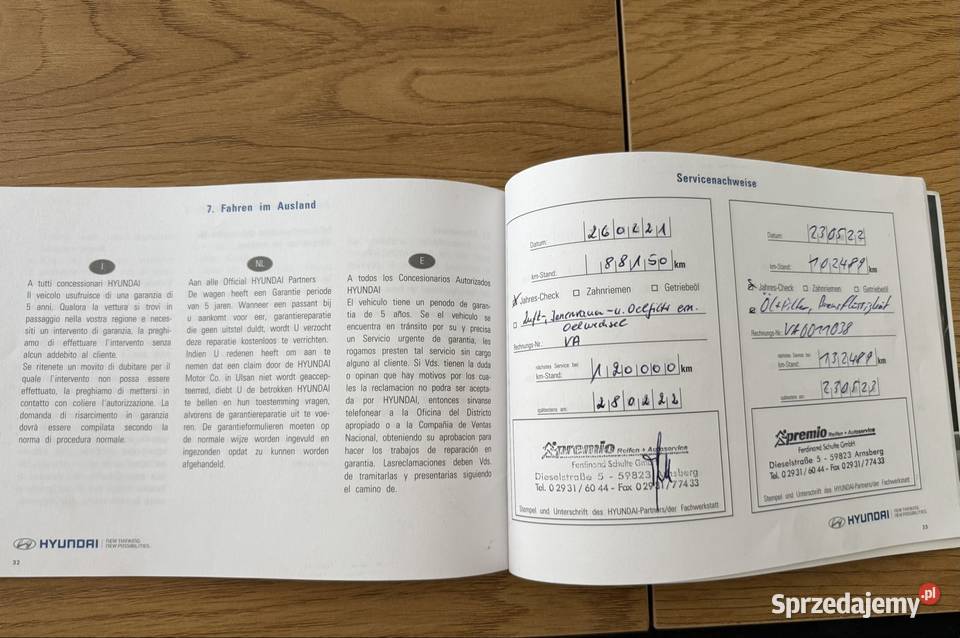 7. Fahren im Ausland
I
A tutti concessionari HYUNDAI
Il veicolo usufruisce di una garanzia di
5 anni. Qualora la vettura si trovi in
passaggio nella vostra regione e neces-
siti un intervento di garanzia, la preghi-
amo di effettuare l'intervento senza
alcun addebito al cliente.
Se ritenete un movito di dubitare per il
quale l'intervento non possa essere
effettuato, la preghiamo di mettersi in
contatto con coliere l'autorizzazione. La
domanda di risarcimento in garanzia
dovrà essere compilata secondo la
norma di procedura normale.
NL
Aan alle Official HYUNDAI Partners
De wagen heeft een Garantie periode
van 5 jaren. Wanneer een passant bij
u aankomt voor eer, garantiereparatie
die geen uitstel duldt, wordt U verzocht
deze reparatie kostenloos te verrichten.
Indien U redenen heeft om aan te
nemen dat een claim door de HYUNDAI
Motor Co. in Ulsan niet wordt geaccep-
teerred, diebt U de betrokken HYUNDAI
te bellen en hun toestemming vragen,
alvorens de garantiereparatie uit te voe-
ren. De garantieformulieren moeten op
de normale wijze worden ingevuld en
ingezonden opdat zu kunnen worden
afgehandeld.
E
A todos los Concesionarios Autorizados
HYUNDAI
El vehiculo tiene un penodo de garan-
tia de 5 años. Se el vehiculo se
encuentra en tránsito por su y precisa
un Servicio urgente de garantia, les
rogamos presten tal servicio sin cargo
alguno al cliente. Si Vds. tienen la duda
o opinan que hay motivos por los cua-
les la reclamacion no podra ser acepta-
da por HYUNDAI, entonces sirvanse
telefonear a la Oficina del Districto
apropiado o a la Compañia de Ventas
Nacional, obteniendo su aprobacion para
hacer los trabajos de reparación en
garantia. Lasreclamaciones deben Vds.
de tramitarlas y presentarias siguiendo
el camino de.
HYUNDAI
NEW THINKING.
NEW POSSIBILITIES.
32
Servicenachweise
Datum: 260221
km-Stand: 88150 km
Jahres-Check Zahnriemen Getriebeöl
Luft-, Innenraum- u. Oelfilter ern.
Oelwechsel
Rechnungs-Nr.: VA
nächstes Service bei
km-Stand: 120000 km
spätestens am: 280222
premio Reifen + Autoservice
Ferdinand Schulte GmbH
Dieselstraße 5 - 59823 Arnsberg
Tel. 0 29 31 / 60 44 - Fax 0 29 31 / 7 74 33
Stempel und Unterschrift des HYUNDAI-Partners/der Fachwerkstatt
Datum: 230522
km-Stand: 102489 km
Jahres-Check Zahnriemen Getriebeöl
Öl+Filter, Bremsflüssigkeit
Rechnungs-Nr.: VA0011038
nächstes Service bei
km-Stand: 132489 km
spätestens am: 230523
premio Reifen + Autoservice
Ferdinand Schulte GmbH
Dieselstraße 5 - 59823 Arnsberg
Tel. 0 29 31 / 60 44 - Fax 0 29 31 / 7 74 33
Stempel und Unterschrift des HYUNDAI-Partners/der Fachwerkstatt
HYUNDAI
NEW THINKING.
NEW POSSIBILITIES.
33
Sprzedajemy.pl